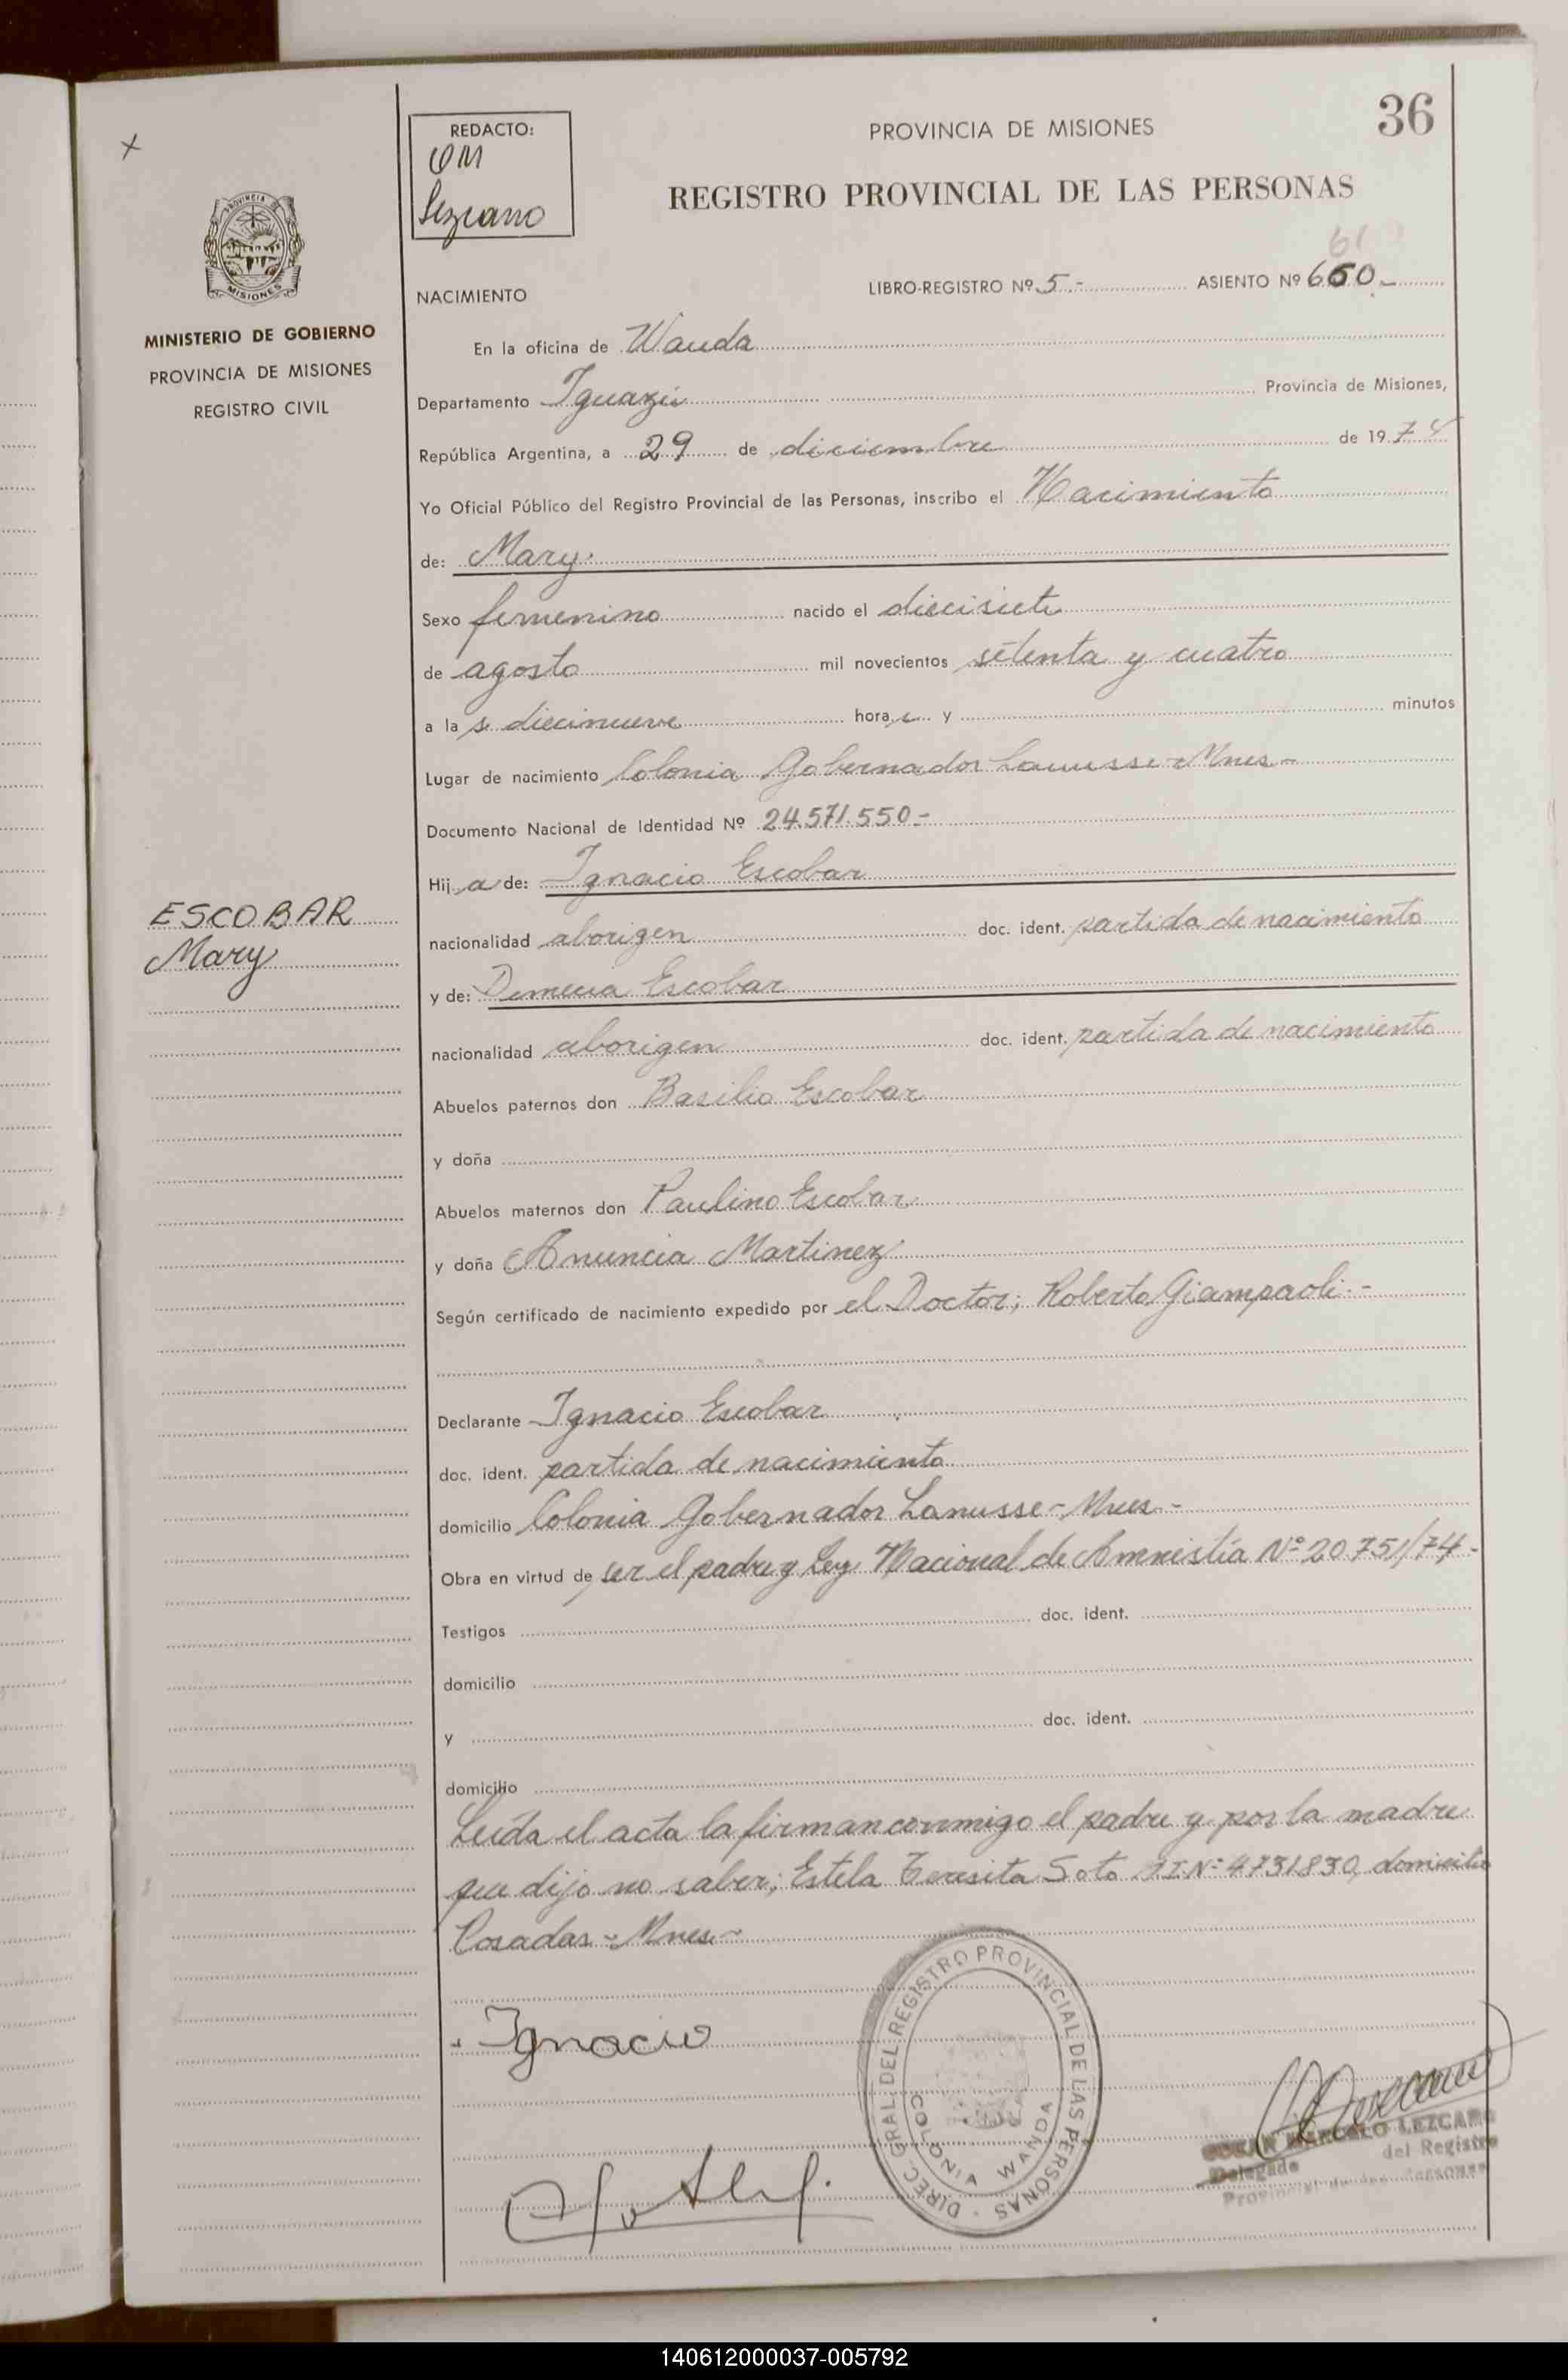 36
REDACTO:
OM
Lezcano
PROVINCIA DE MISIONES
REGISTRO PROVINCIAL DE LAS PERSONAS
PROVINCIA DE
MISIONES
MINISTERIO DE GOBIERNO
PROVINCIA DE MISIONES
REGISTRO CIVIL
61
NACIMIENTO LIBRO-REGISTRO Nº 5.- ASIENTO Nº 660.-
En la oficina de Wanda
Departamento Iguazú Provincia de Misiones,
República Argentina, a 29 de diciembre de 1974
Yo Oficial Público del Registro Provincial de las Personas, inscribo el Nacimiento
de: Mary.
Sexo femenino nacido el diecisiete
de agosto mil novecientos setenta y cuatro
a las diecinueve hora s y minutos
Lugar de nacimiento Colonia Gobernador Lanusse - Mnes -
Documento Nacional de Identidad Nº 24.571.550-
Hij a de: Ignacio Escobar
ESCOBAR
Mary
nacionalidad aborigen doc. ident. partida de nacimiento
y de: Demecia Escobar
nacionalidad aborigen doc. ident. partida de nacimiento
Abuelos paternos don Basilio Escobar
y doña
Abuelos maternos don Paulino Escobar
y doña Anuncia Martinez
Según certificado de nacimiento expedido por el Doctor; Roberto Giampaoli.-
Declarante Ignacio Escobar
doc. ident. partida de nacimiento
domicilio Colonia Gobernador Lanusse - Mnes -
Obra en virtud de ser el padre y Ley Nacional de Amnistía Nº 20751/74-
Testigos doc. ident.
domicilio
y doc. ident.
domicilio
Leída el acta la firman conmigo el padre y por la madre
que dijo no saber; Estela Teresita Soto Nº 4731830, domicilio
Posadas - Mnes -
Ignacio
DIREC. GRAL. DEL REGISTRO PROVINCIAL DE LAS PERSONAS
COLONIA WANDA
MARCELO LEZCANO
Delegado del Registro
Provincial de las Personas
140612000037-005792